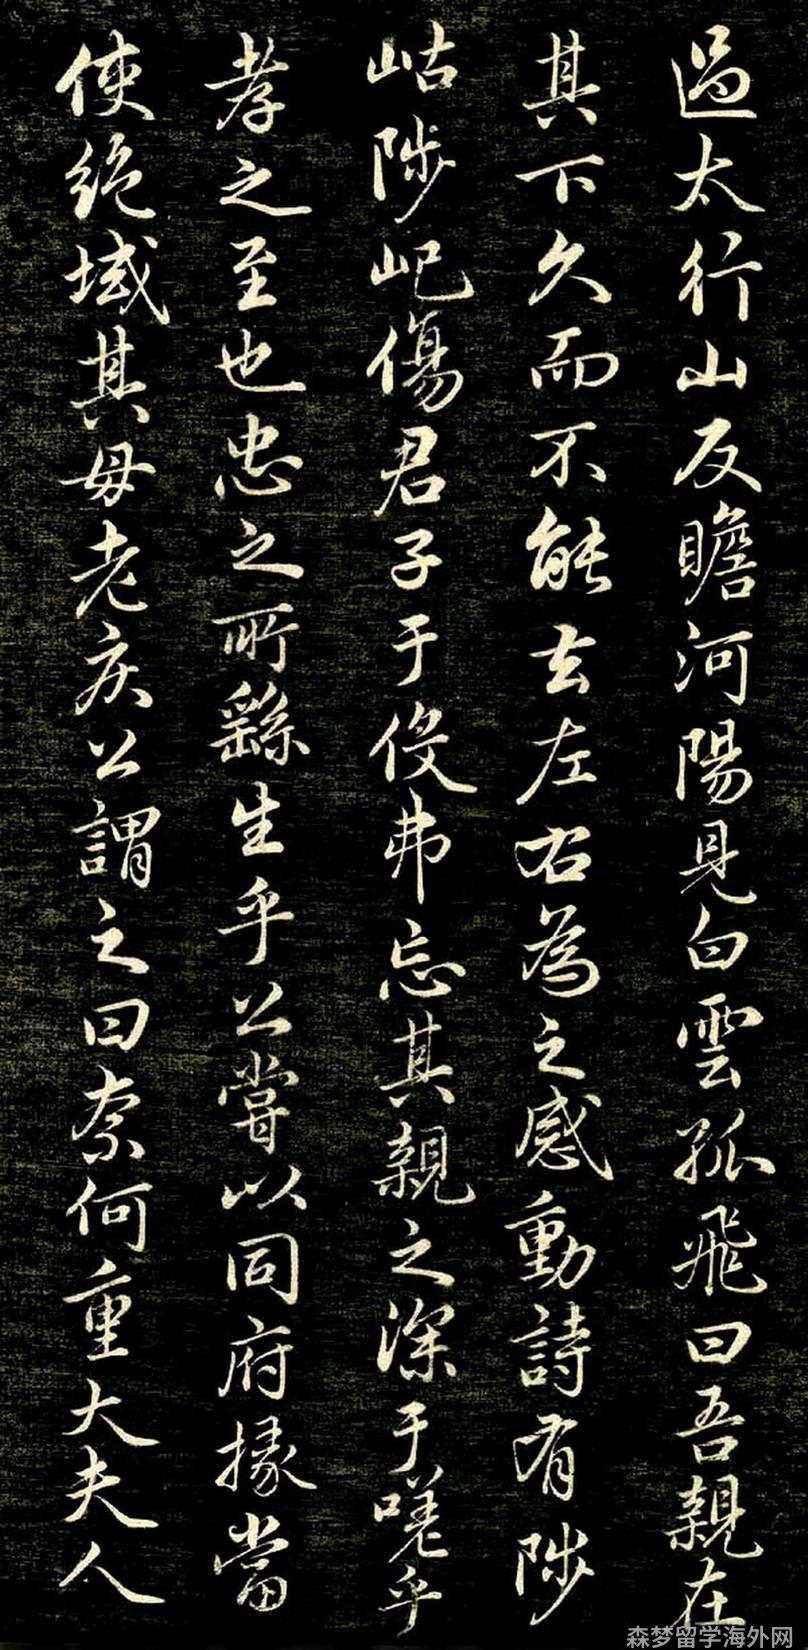 過太行山反瞻河陽見白雲孤飛曰吾親在
其下久而不能去左右為之感動詩有陟
岵陟屺傷君子于役弗忘其親之深于嗟乎
孝之至也忠之所繇生乎公嘗以同府掾當
使絕域其母老疾公謂之曰奈何重大夫人
森梦留学海外网